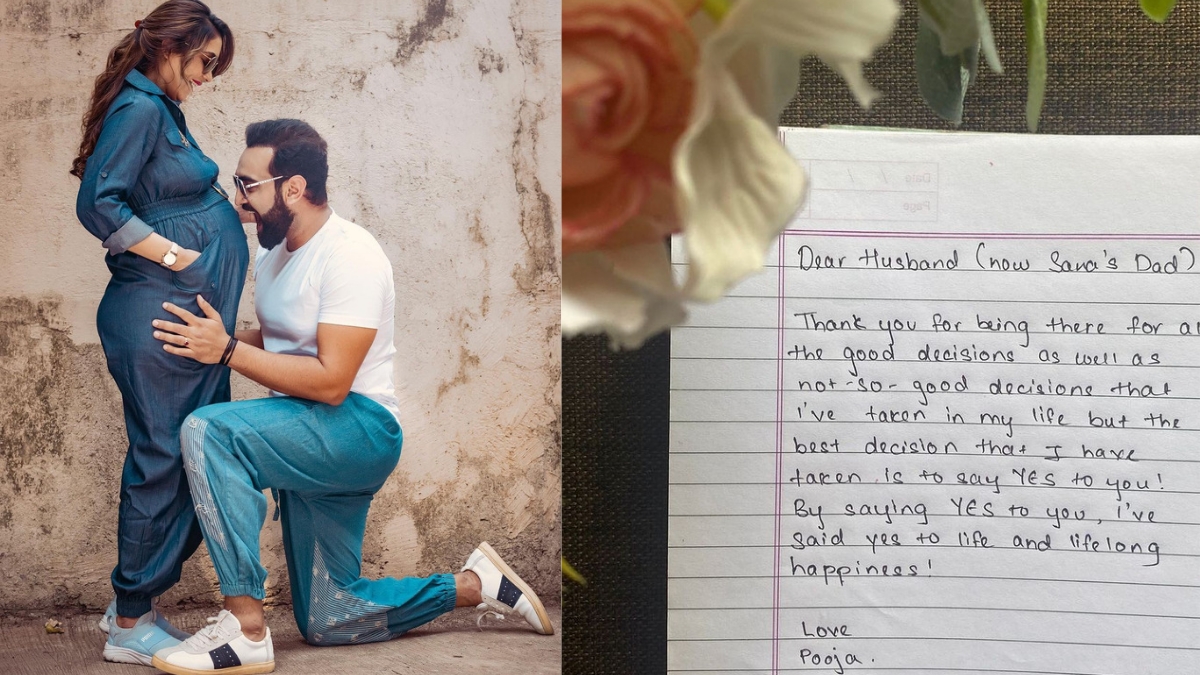 Date / /
Page
Dear Husband (now Sara's Dad)
Thank you for being there for al
the good decisions as well as
not-so-good decisions that
I've taken in my life but the
best decision that I have
taken is to say YES to you!
By saying YES to you, I've
said yes to life and lifelong
happiness!
Love
Pooja.